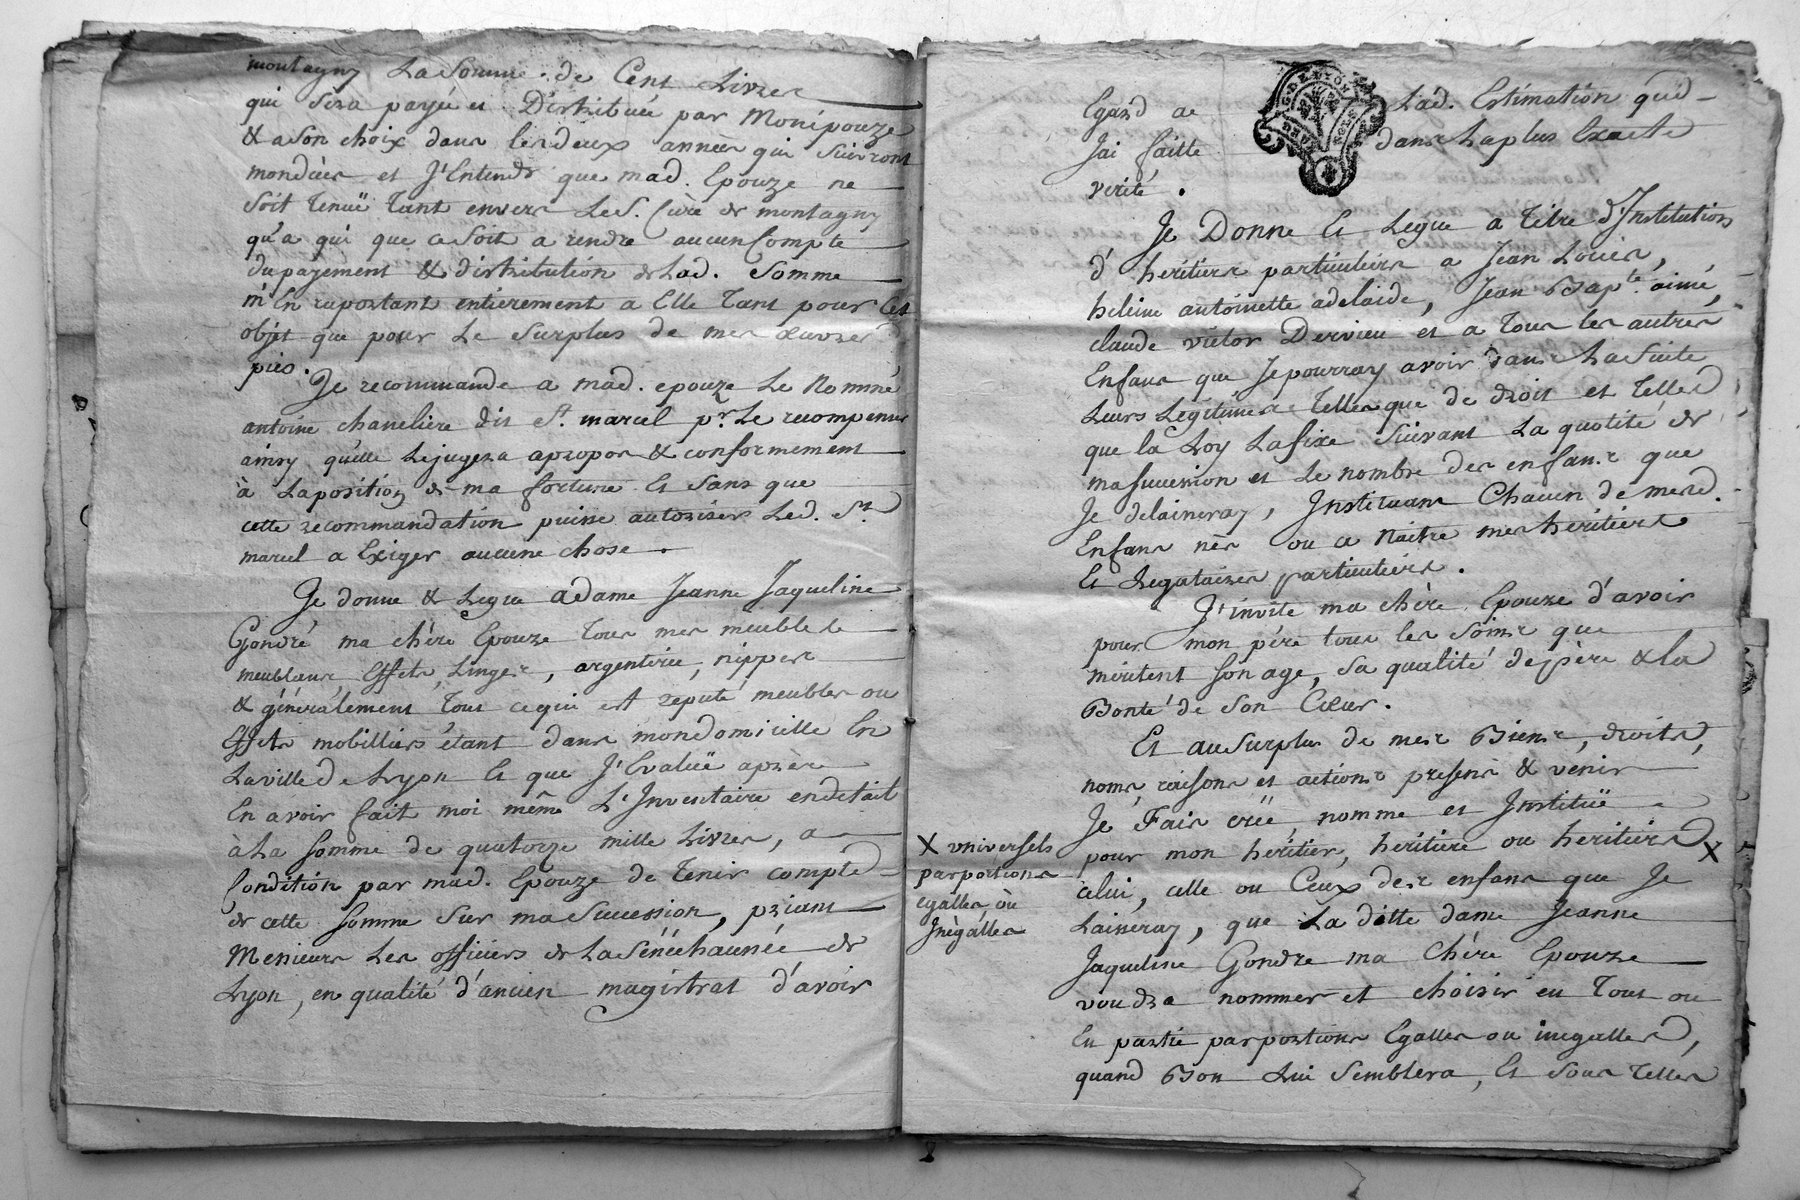 montagny La Somme de Cent Livres
qui Sera payée et Distribuée par Monépouze
& a Son choix dans les deux années qui Suivront
mondécès et J'Entends que mad. Epouze ne
Soit Tenuë Tant envers Le S. Curé de montagny
qu'a qui que ce Soit a rendre aucun Compte
du payement & distribution de Lad. Somme
m'En raportant entièrement a Elle Tant pour Cet
objet que pour Le Surplus de mes œuvres
pies.
Je recommande a mad. epouze Le Nommé
antoine chaneliere dit St. marcel pr. Le recompenser
ainsy qu'elle Lejugera apropos & conformement
à Laposition de ma fortune Et Sans que
cette recommandation puisse autoriser Led. St.
marcel a Exiger aucune chose.
Je donne & Legue adame Jeanne Jaqueline
Gondré ma chère Epouze Tous mes meubles
meublans Effets, Linges, argenterie, nippes
& généralement Tout cequi est reputé meubles ou
Effets mobilliers étant dans mondomicille En
Laville de Lyon Et que J'Evalüe après
En avoir fait moi même L'Inventaire endetail
à La Somme de quatorze mille Livres, a
Condition par mad. Epouze de Tenir compte
de cette Somme Sur ma Succession, priant
Messieurs Les officiers de La Sénéchaussée de
Lyon, en qualité d'ancien magistrat d'avoir
G. DE LYON
Egard a Lad. Estimation que
Jai faitte dans Laplus Exacte
verité.
Je Donne Et Legue a Titre d'Institution
d'heritiers particuliers a Jean Louis,
heleine antoinette adelaide, Jean Bapte. aimé,
claude victor Dervieu et a Tous les autres
Enfans que Jepourray avoir dans La Suite
Leurs Legitimes Telles que de droit et Telles
que la Loy Lafixe Suivant La quotité de
masuccession et Le nombre des enfans que
Je delaisseray, Instituant Chacun de mesd.
Enfans nés ou a Naitre mes heritiers
Et Legataires particuliers.
J'invite ma chère Epouze d'avoir
pour mon père tous les Soins que
méritent Son age, Sa qualité de père & la
Bonté de Son Cœur.
Et au Surplus de mes Biens, droits,
noms, raisons et actions presens & venir
Je Fais créé, nomme et Instituë
pour mon héritier, héritière ou heritiers X
X universels
parportions
egalles ou
Inégalles
celui, celle ou Ceux des enfans que Je
Laisseray, que La ditte dame Jeanne
Jaqueline Gondre ma Chère Epouze
voudra nommer et choisir en Tout ou
En partie parportions Egalles ou inegalles,
quand Bon Lui Semblera, Et Sous Telles